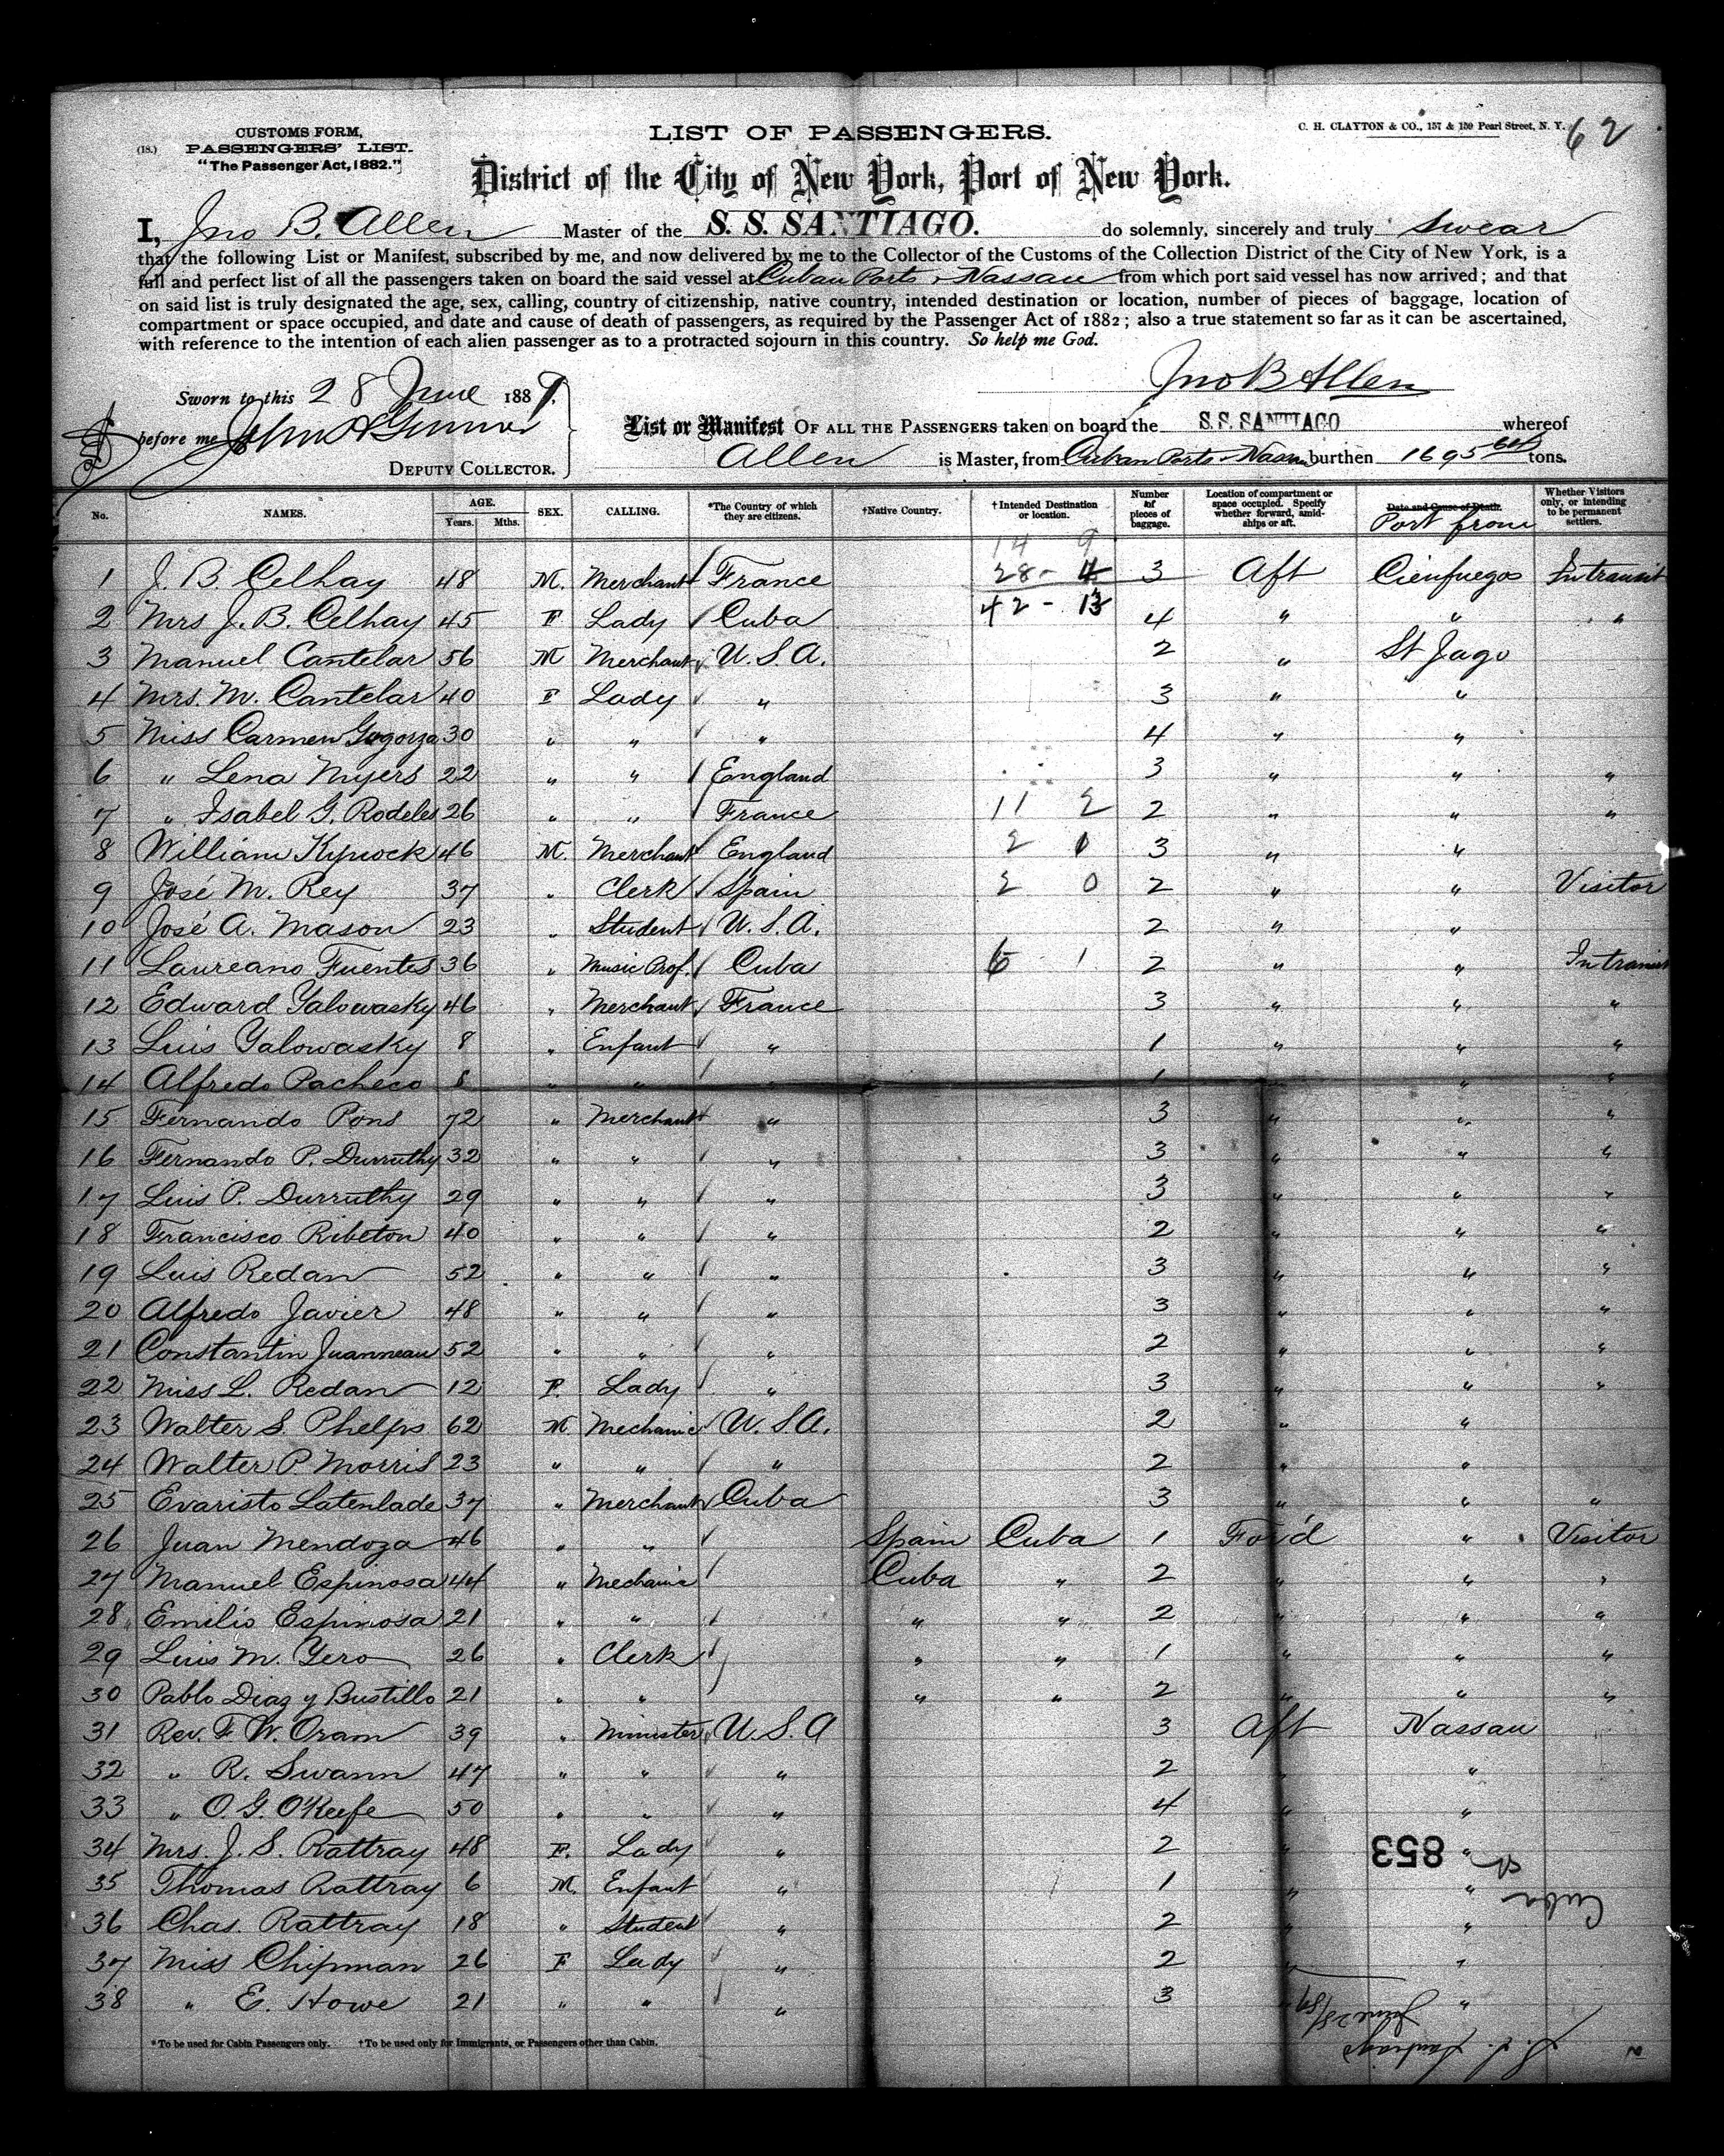 CUSTOMS FORM,
(18.) PASSENGERS' LIST.
"The Passenger Act, 1882."
LIST OF PASSENGERS.
C. H. CLAYTON & CO., 157 & 159 Pearl Street, N. Y.
62
District of the City of New York, Port of New York.
I, Jno B. Allen Master of the S. S. SANTIAGO. do solemnly, sincerely and truly swear
that the following List or Manifest, subscribed by me, and now delivered by me to the Collector of the Customs of the Collection District of the City of New York, is a
full and perfect list of all the passengers taken on board the said vessel at Cuban Ports & Nassau from which port said vessel has now arrived; and that
on said list is truly designated the age, sex, calling, country of citizenship, native country, intended destination or location, number of pieces of baggage, location of
compartment or space occupied, and date and cause of death of passengers, as required by the Passenger Act of 1882; also a true statement so far as it can be ascertained,
with reference to the intention of each alien passenger as to a protracted sojourn in this country. So help me God.
Jno B Allen
Sworn to this 28 June 1889.
before me John
DEPUTY COLLECTOR.
List or Manifest OF ALL THE PASSENGERS taken on board the S. S. SANTIAGO whereof
Allen is Master, from Cuban Ports & Nassau burthen 1695 tons.
No. NAMES. AGE. Years. Mths. SEX. CALLING. *The Country of which they are citizens. †Native Country. †Intended Destination or location. Number of pieces of baggage. Location of compartment or space occupied. Specify whether forward, amidships or aft. Date and Cause of Death. Port from Whether Visitors only, or intending to be permanent settlers.
14 9
1 J. B. Celhay 48 M. Merchant France 28 - 4 3 Aft Cienfuegos Intransit
2 Mrs J. B. Celhay 45 F Lady Cuba 42 - 13 4 " " "
3 Manuel Cantelar 56 M Merchant U. S. A. 2 " St Jago
4 Mrs. M. Cantelar 40 F Lady " 3 " "
5 Miss Carmen 30 " " " 4 " "
6 " Lena Myers 22 " " England 3 " " "
7 " Isabel G. Rodeles 26 " " France 11 2 2 " " "
8 William 46 M. Merchant England 2 1 3 " "
9 José M. Rey 37 " Clerk Spain 2 0 2 " " Visitor
10 José A. Mason 23 " Student U. S. A. 2 " "
11 Laureano Fuentes 36 " Music Prof. Cuba 6 1 2 " " Intransit
12 Edward Yalowasky 46 " Merchant France 3 " " "
13 Luis Yalowasky 8 " Enfant " 1 " " "
14 Alfredo Pacheco 8 " " " 1 " " "
15 Fernando Pons 72 " Merchant " 3 " " "
16 Fernando P. Durruthy 32 " " " 3 " " "
17 Luis P. Durruthy 29 " " " 3 " " "
18 Francisco Ribeton 40 " " " 2 " " "
19 Luis Redan 52 " " " 3 " " "
20 Alfredo Javier 48 " " " 3 " " "
21 Constantin Juanneau 52 " " " 2 " " "
22 Miss L. Redan 12 F. Lady " 3 " " "
23 Walter S. Phelps 62 M Mechanic U. S. A. 2 " "
24 Walter P. Morris 23 " " " 2 " "
25 Evaristo Latenlade 37 " Merchant Cuba 3 " " "
26 Juan Mendoza 46 " " Spain Cuba 1 For'd " Visitor
27 Manuel Espinosa 44 " Mechanic Cuba " 2 " " "
28 Emilio Espinosa 21 " " " " 2 " " "
29 Luis M. Yero 26 " Clerk " " 1 " " "
30 Pablo Diaz y Bustillo 21 " " " " 2 " " "
31 Rev. F. W. Oram 39 " Minister U. S. A 3 Aft Nassau
32 " R. Swann 47 " " " 2 " "
33 " O. G. O'Keefe 50 " " " 4 " "
34 Mrs. J. S. Rattray 48 F. Lady " 2 " "
35 Thomas Rattray 6 M. Enfant " 1 " "
36 Chas. Rattray 18 " Student " 2 " "
37 Miss Chipman 26 F Lady " 2 " "
38 " E. Howe 21 " " " 3 " "
853
Cuba
June 28/89
S. S. Santiago
*To be used for Cabin Passengers only. †To be used only for Immigrants, or Passengers other than Cabin.